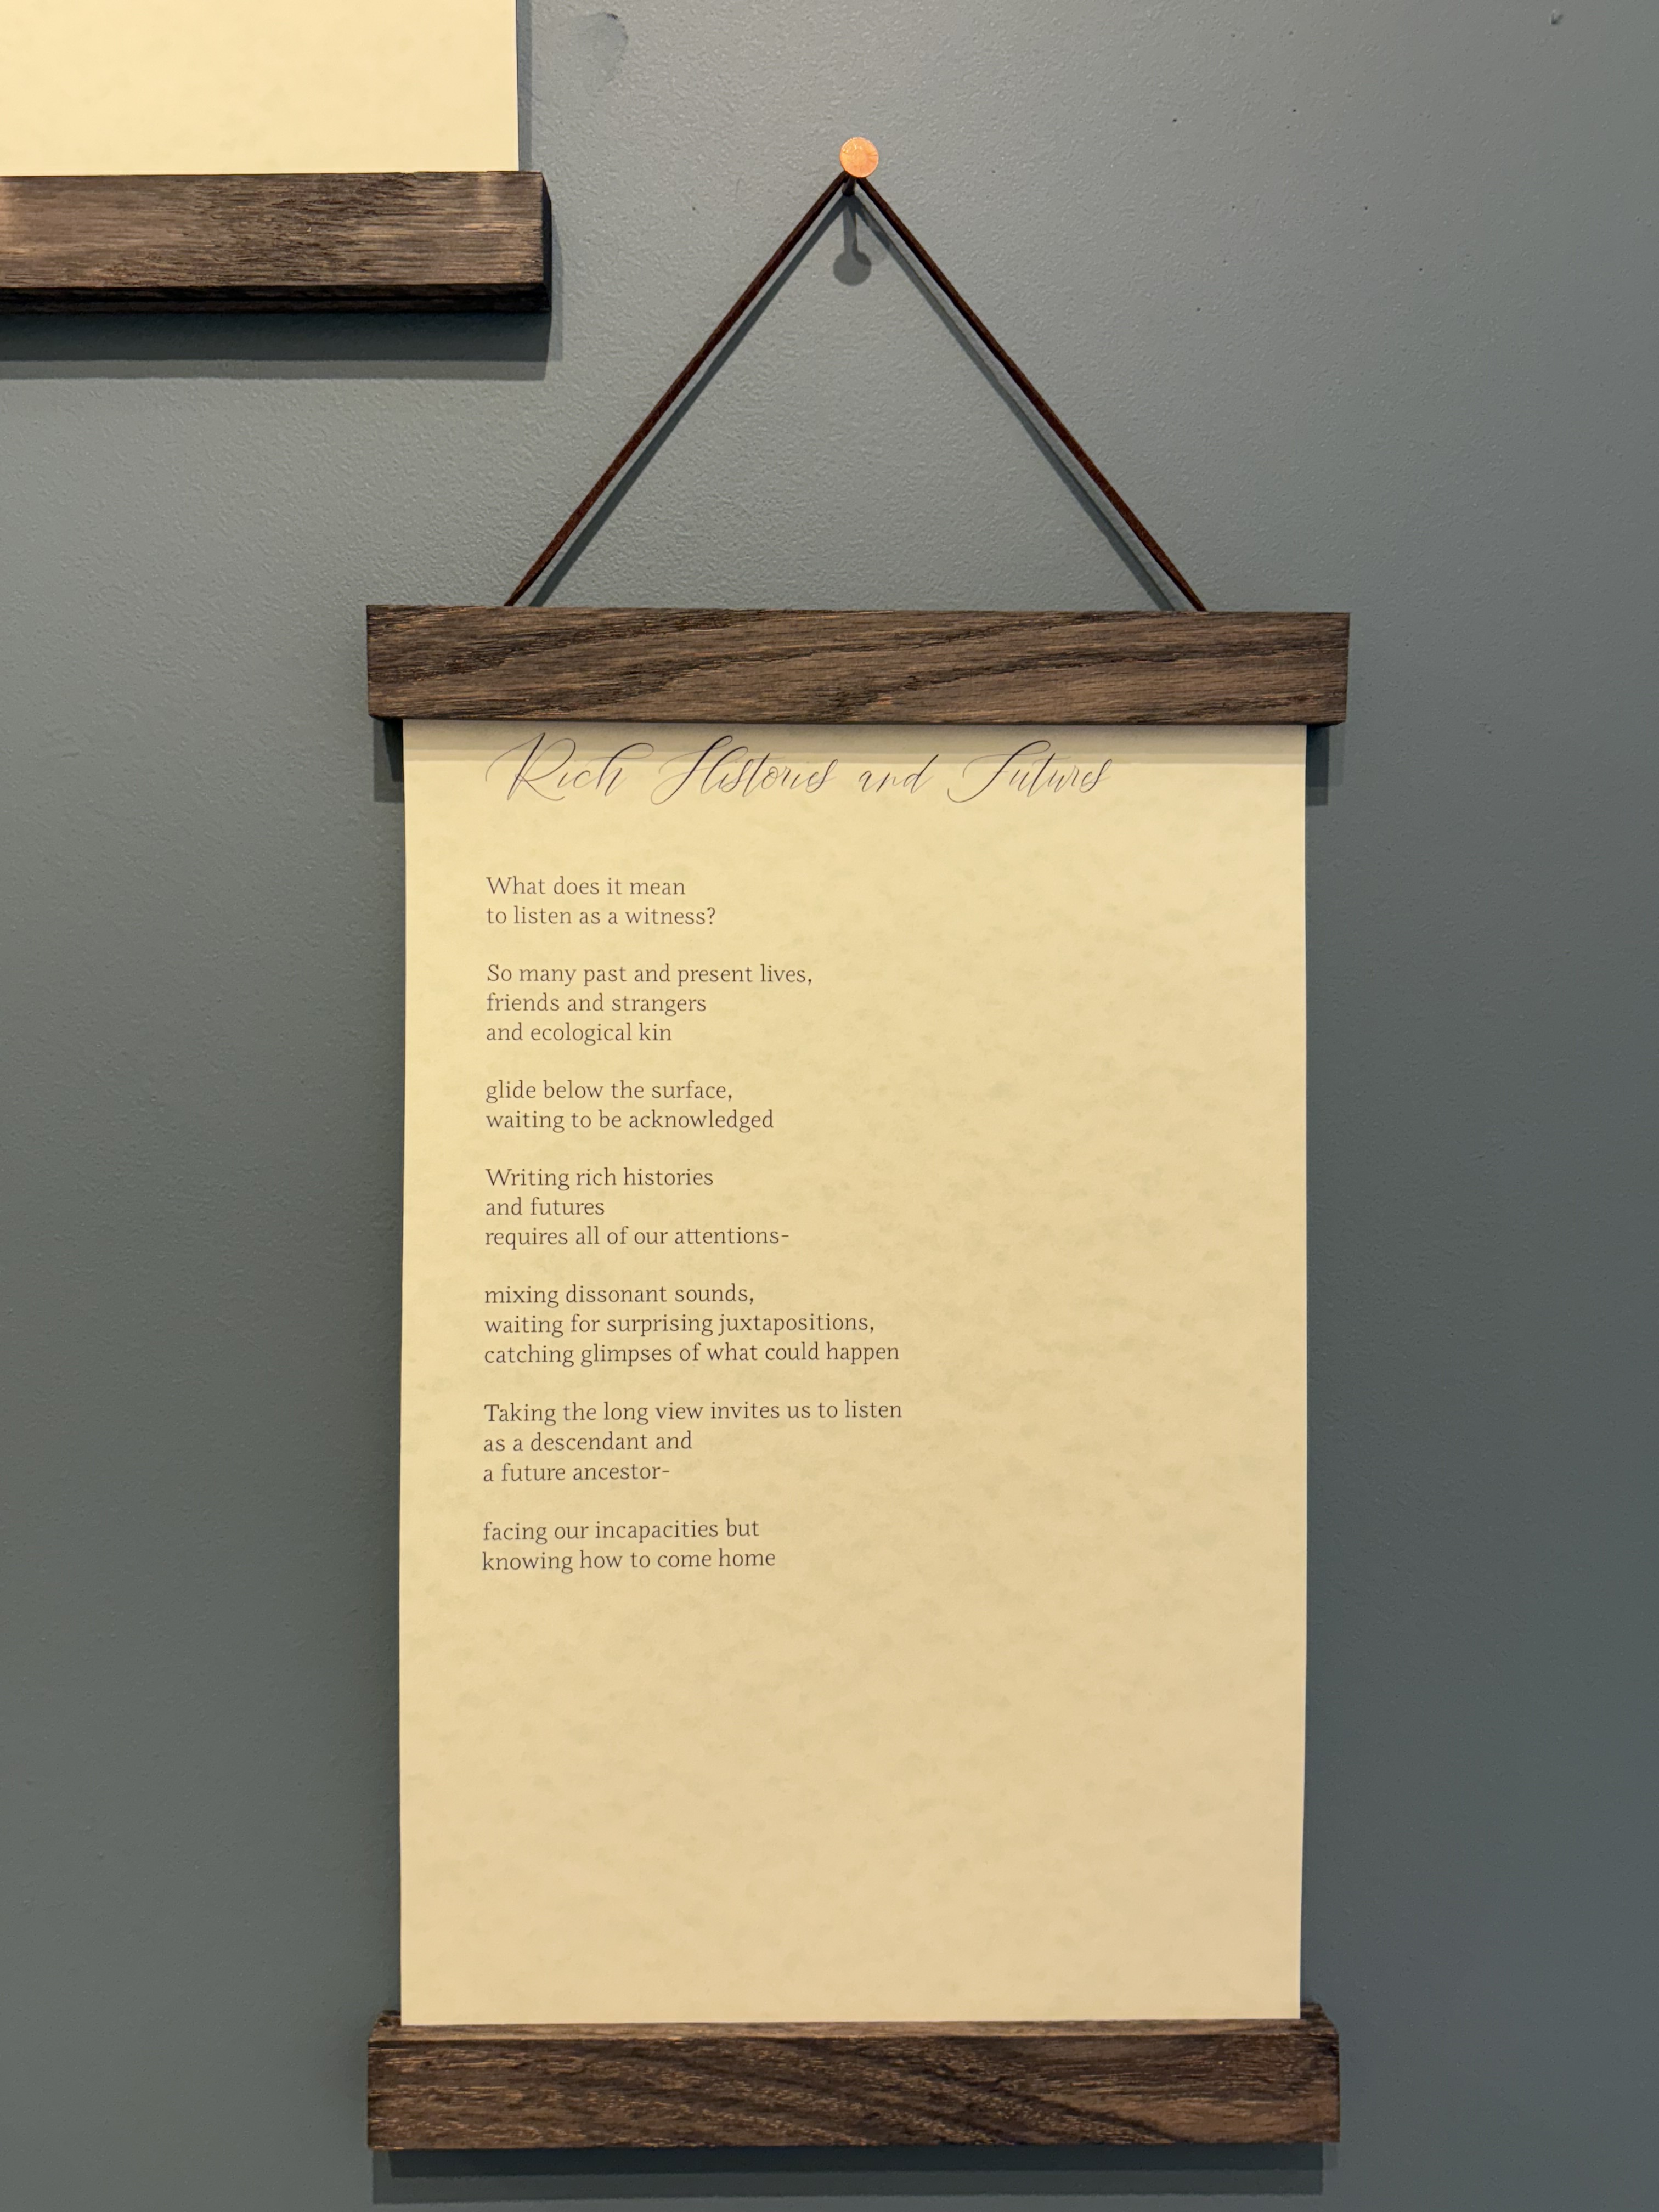 Rich Histories and Futures
What does it mean
to listen as a witness?
So many past and present lives,
friends and strangers
and ecological kin
glide below the surface,
waiting to be acknowledged
Writing rich histories
and futures
requires all of our attentions-
mixing dissonant sounds,
waiting for surprising juxtapositions,
catching glimpses of what could happen
Taking the long view invites us to listen
as a descendant and
a future ancestor-
facing our incapacities but
knowing how to come home